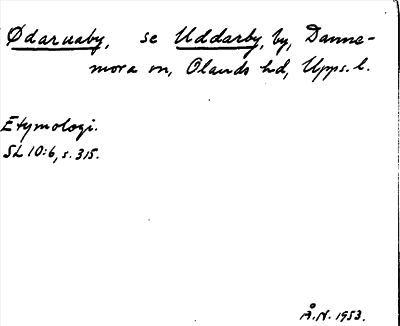 Ødaruaby, se Uddarby, by, Danne-
mora sn, Olands hd, Upps. l.
Etymologi.
SL 10:6, s. 315.
Å.N. 1953.